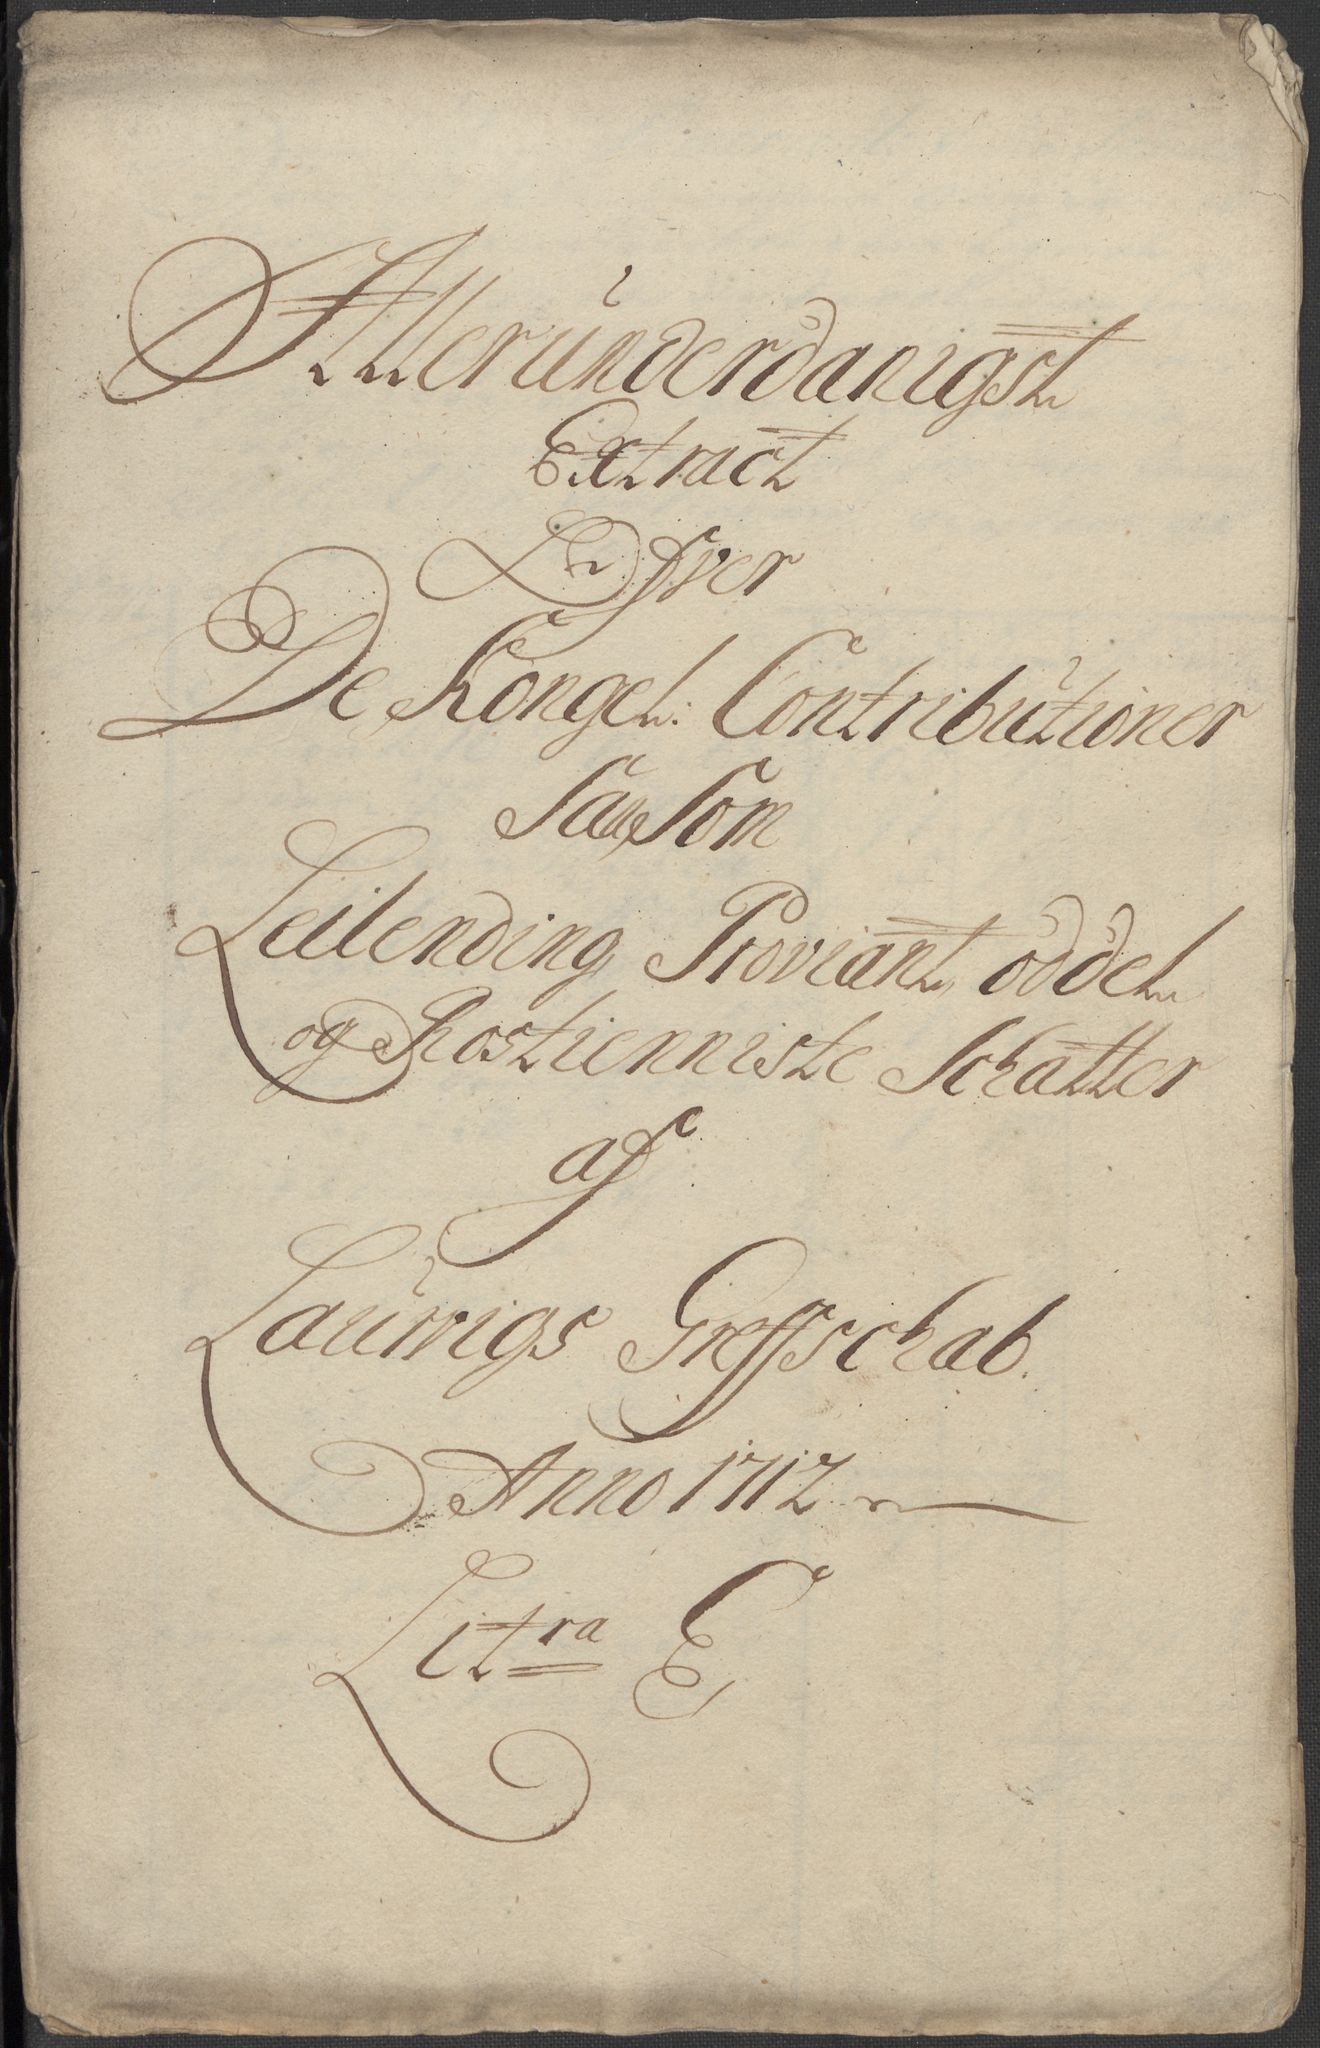 Allerúnderdanigst
Extract
Ofver
De Kongel: Contribútioner
Saa Som
Leilending Proviant oddel
og Rostienniste Schatter
af
Laúrvigs Greffschab.
Anno 1712
Litra E